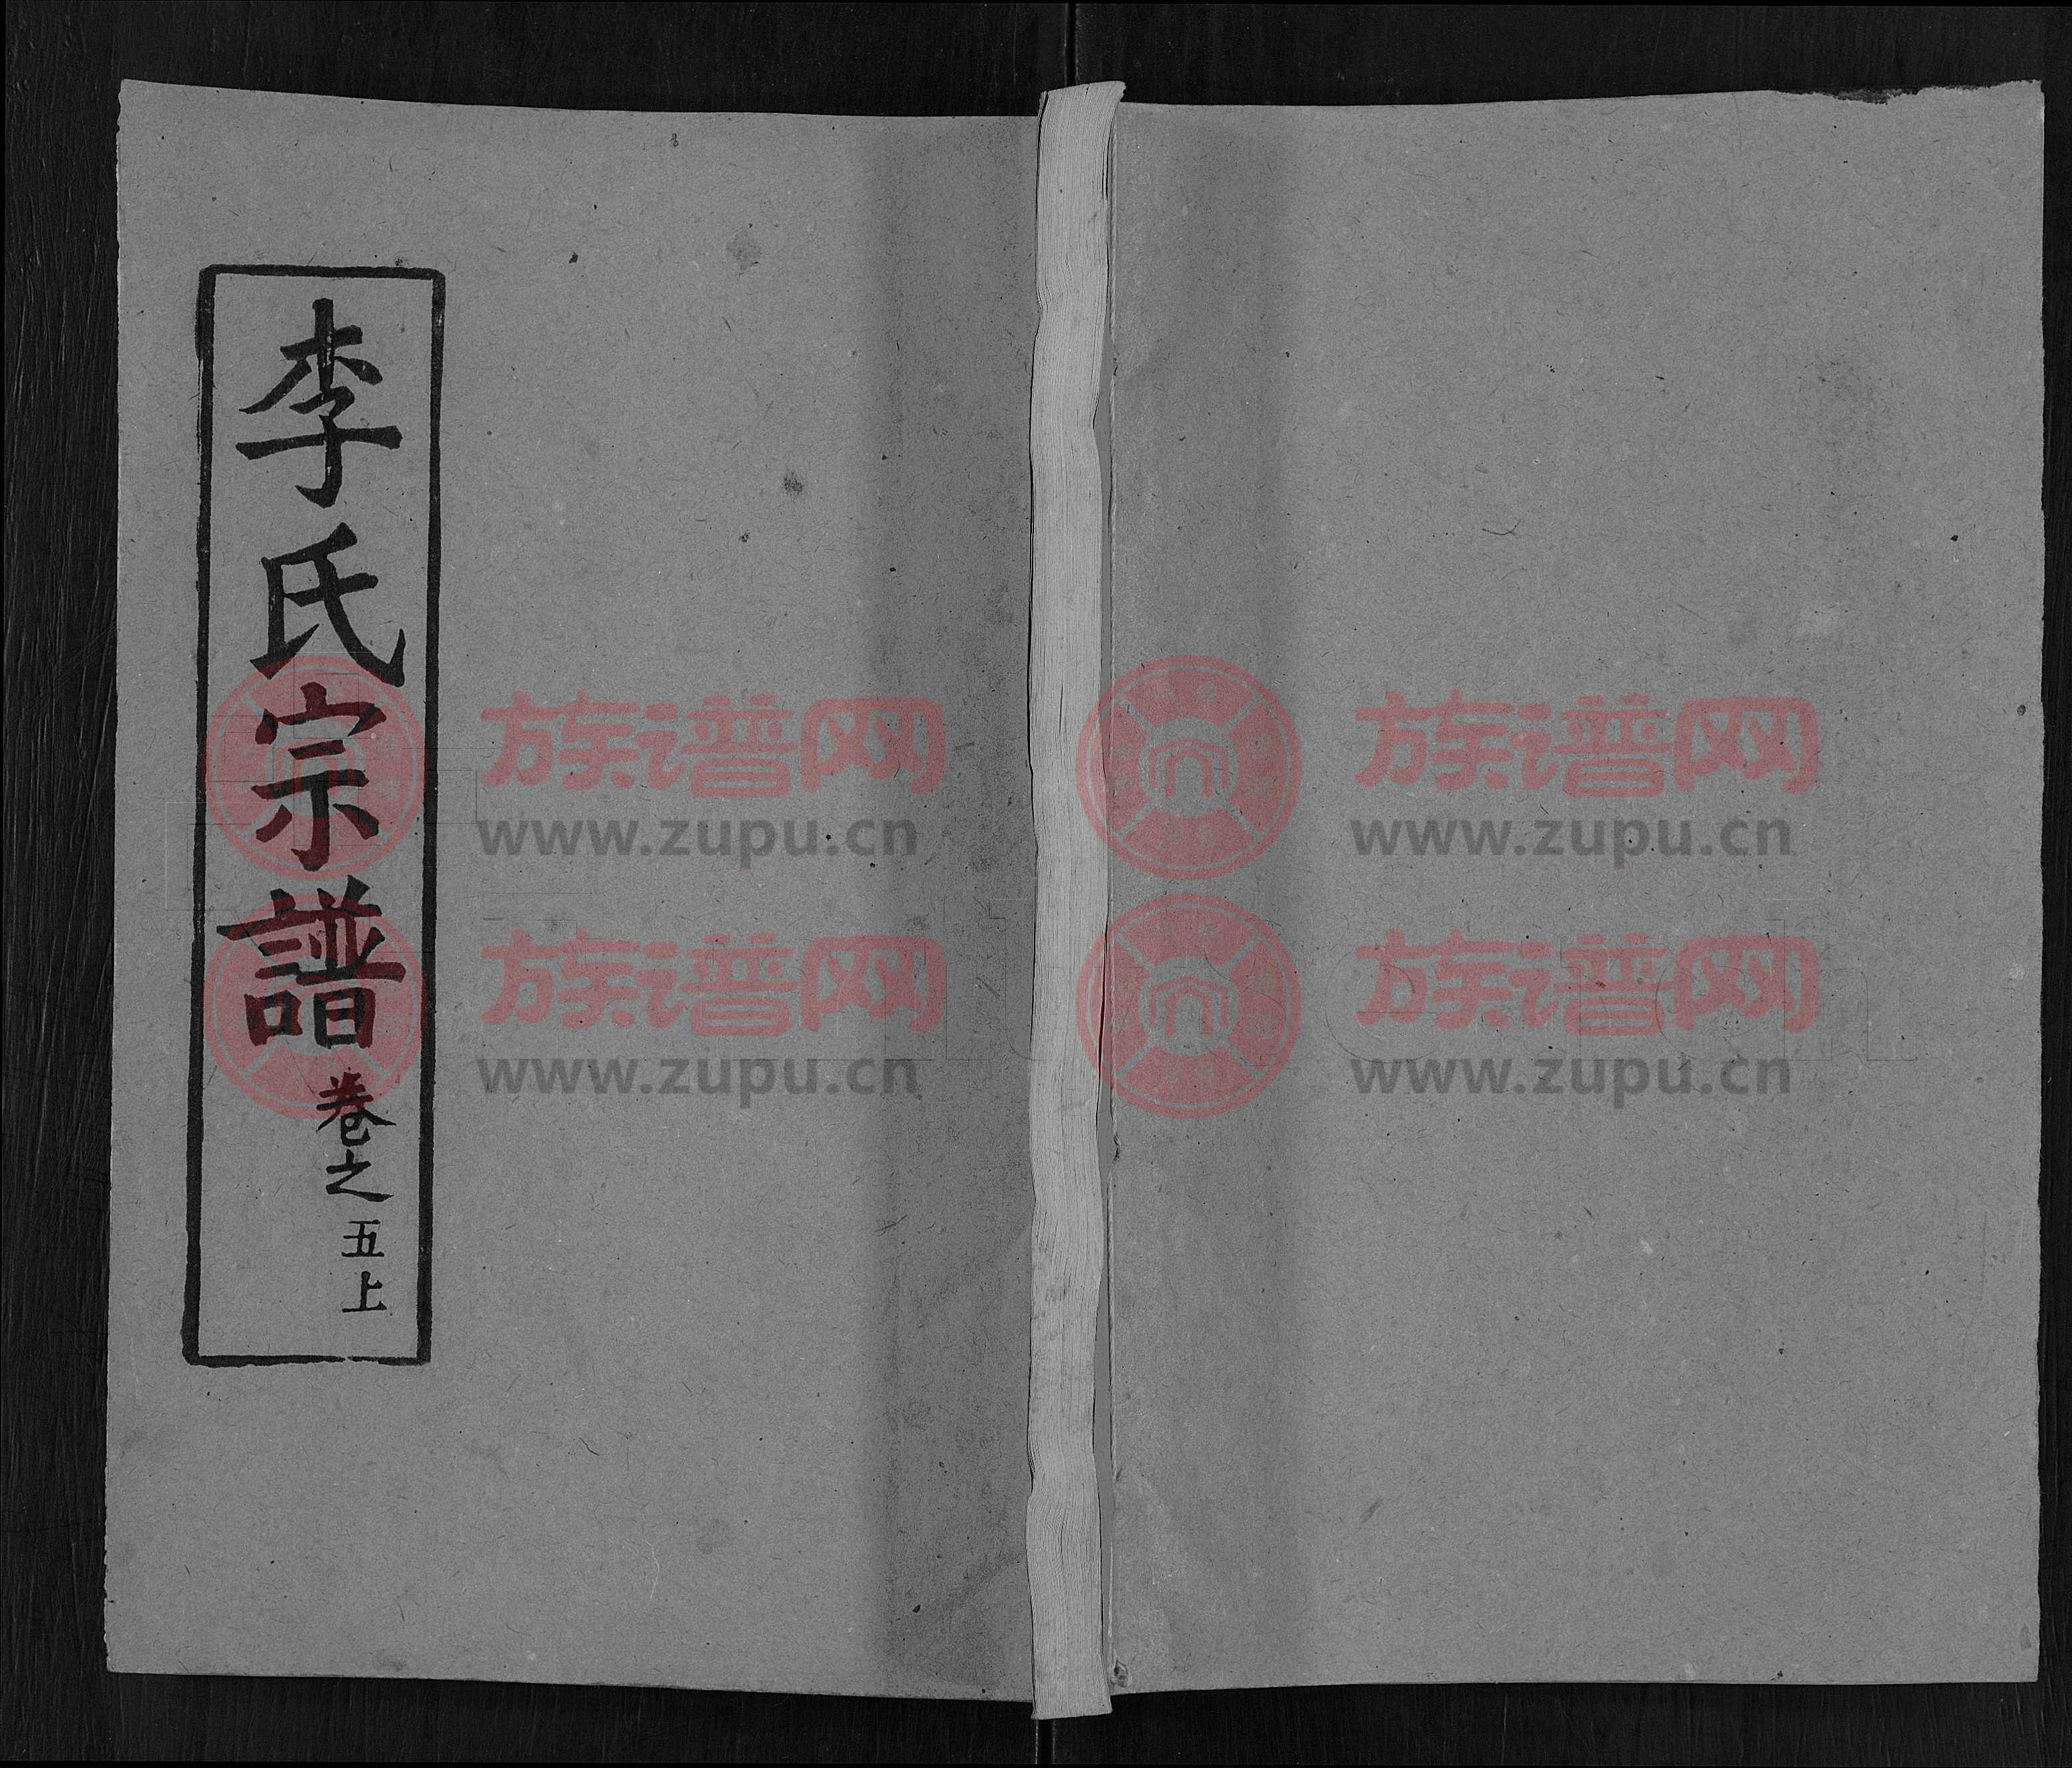 李氏宗譜 卷之五上
族谱网
www.zupu.cn
族谱网
www.zupu.cn
族谱网
www.zupu.cn
族谱网
www.zupu.cn